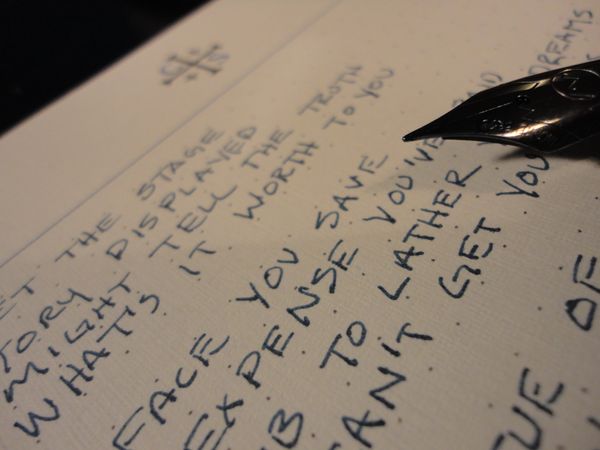 ET THE STAGE
TORY DISPLAYED
MIGHT TELL THE TRUTH
WHAT'S IT WORTH TO YOU
FACE YOU SAVE
EXPENSE YOU'VE
B TO LATHER
AN'T GET YOU DREAMS
UE OF